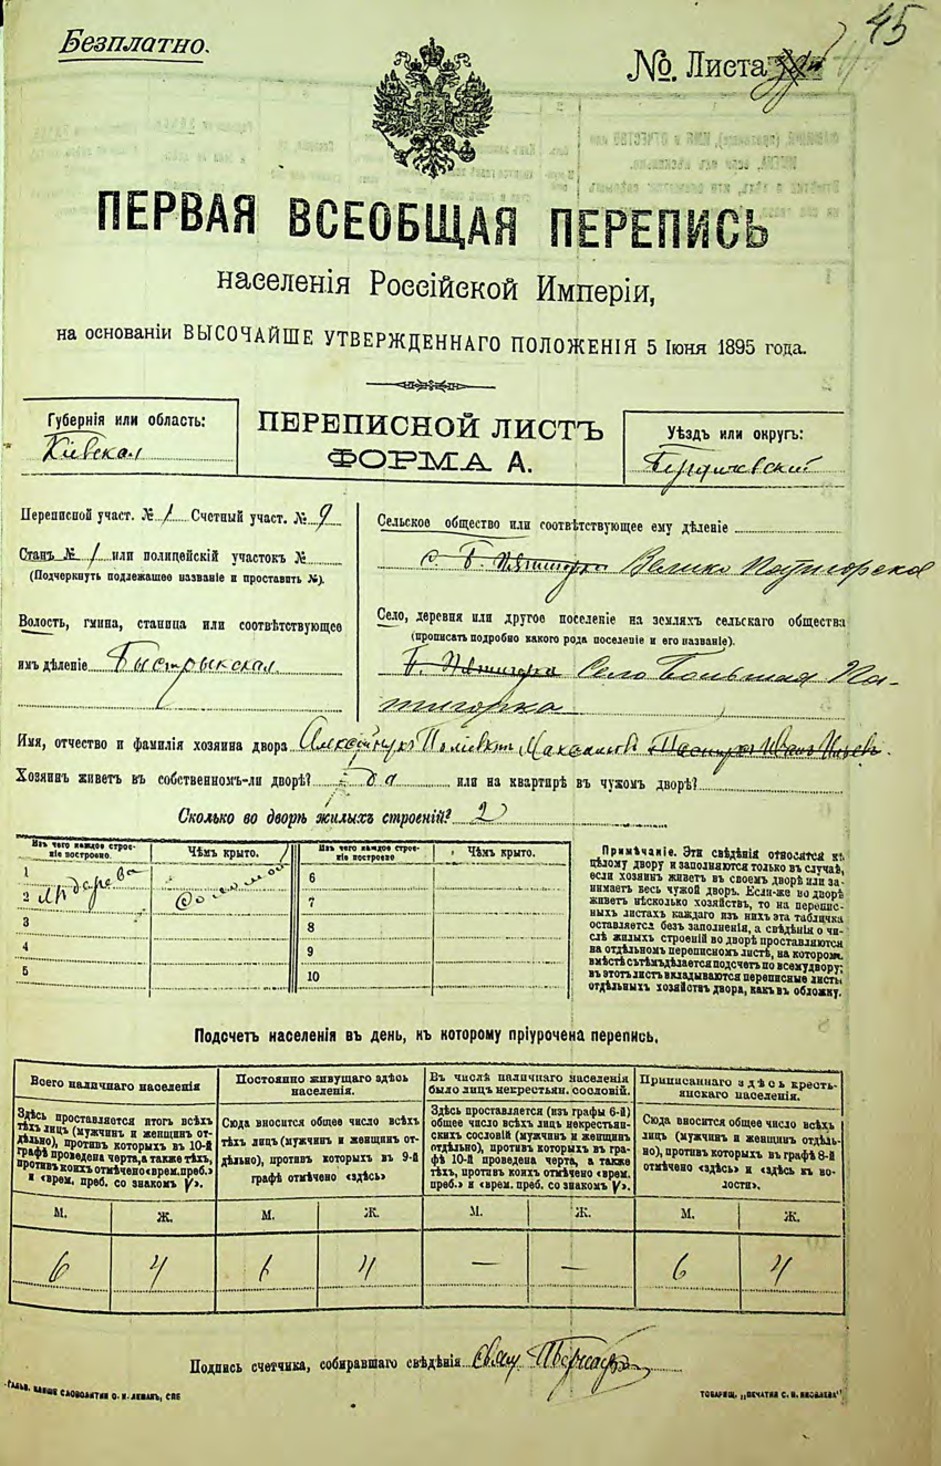 Безплатно.
№. Листа 45
ПЕРВАЯ ВСЕОБЩАЯ ПЕРЕПИСЬ
населенія Россійской Имперіи,
на основаніи ВЫСОЧАЙШЕ УТВЕРЖДЕННАГО ПОЛОЖЕНІЯ 5 Іюня 1895 года.
Губернія или область:
Кіевская
ПЕРЕПИСНОЙ ЛИСТЪ
ФОРМА А.
Уѣздъ или округъ:
Бердичевскій
Переписной участ. № 1 Счетный участ. № 9
Станъ № 1 или полицейскій участокъ №
(Подчеркнуть подлежащее названіе и проставить №).
Волость, гмина, станица или соотвѣтствующее
имъ дѣленіе Быстрыкская
Сельское общество или соотвѣтствующее ему дѣленіе
с. Б. Пятигорка Велико Пятигорское
Село, деревня или другое поселеніе на земляхъ сельскаго общества
(прописать подробно какого рода поселеніе и его названіе).
Б. Пятигорка Село Большая Пя-
тигорка
Имя, отчество и фамилія хозяина двора
Хозяинъ живетъ въ собственномъ-ли дворѣ? Да или на квартирѣ въ чужомъ дворѣ?
Сколько во дворѣ жилыхъ строеній? 2
Изъ чего каждое строе-
ніе построено.
Чѣмъ крыто.
Изъ чего каждое строе-
ніе построено
Чѣмъ крыто.
1
2 изъ дерева соломой
3
4
5
6
7
8
9
10
Примѣчаніе. Эти свѣдѣнія относятся къ
цѣлому двору и заполняются только въ случаѣ,
если хозяинъ живетъ въ своемъ дворѣ или за-
нимаетъ весь чужой дворъ. Если-же во дворѣ
живетъ нѣсколько хозяйствъ, то на перепис-
ныхъ листахъ каждаго изъ нихъ эта табличка
оставляется безъ заполненія, а свѣдѣнія о чи-
слѣ жилыхъ строеній во дворѣ проставляются
на отдѣльномъ переписномъ листѣ, на которомъ
вмѣстѣ съ тѣмъ дѣлается подсчетъ по всему двору;
въ этотъ листъ вкладываются переписные листы
отдѣльныхъ хозяйствъ двора, какъ въ обложку.
Подсчетъ населенія въ день, къ которому пріурочена перепись.
Всего наличнаго населенія
Здѣсь проставляется итогъ всѣхъ
тѣхъ лицъ (мужчинъ и женщинъ от-
дѣльно), противъ которыхъ въ 10-й
графѣ проведена черта, а также тѣхъ,
противъ коихъ отмѣчено «врем. преб.»
и «врем. преб. со знакомъ V».
Постоянно живущаго здѣсь
населенія.
Сюда вносится общее число всѣхъ
тѣхъ лицъ (мужчинъ и женщинъ от-
дѣльно), противъ которыхъ въ 9-й
графѣ отмѣчено «здѣсь»
Въ числѣ наличнаго населенія
было лицъ некрестьян. сословій.
Здѣсь проставляется (изъ графы 6-й)
общее число всѣхъ лицъ некрестьян-
скихъ сословій (мужчинъ и женщинъ
отдѣльно), противъ которыхъ въ гра-
фѣ 10-й проведена черта, а также
тѣхъ, противъ коихъ отмѣчено «врем.
преб.» и «врем. преб. со знакомъ V».
Приписаннаго здѣсь кресть-
янскаго населенія.
Сюда вносится общее число всѣхъ
лицъ (мужчинъ и женщинъ отдѣль-
но), противъ которыхъ въ графѣ 8-й
отмѣчено «здѣсь» и «здѣсь къ во-
лости».
М. Ж. М. Ж. М. Ж. М. Ж.
6 4 6 4 — — 6 4
Подпись счетчика, собиравшаго свѣдѣнія
СЛОВОЛИТНИ О. И. ЛЕМАНЪ, СПБ
ТОВАРИЩ. „ПЕЧАТНЯ С. П. ЯКОВЛЕВА“